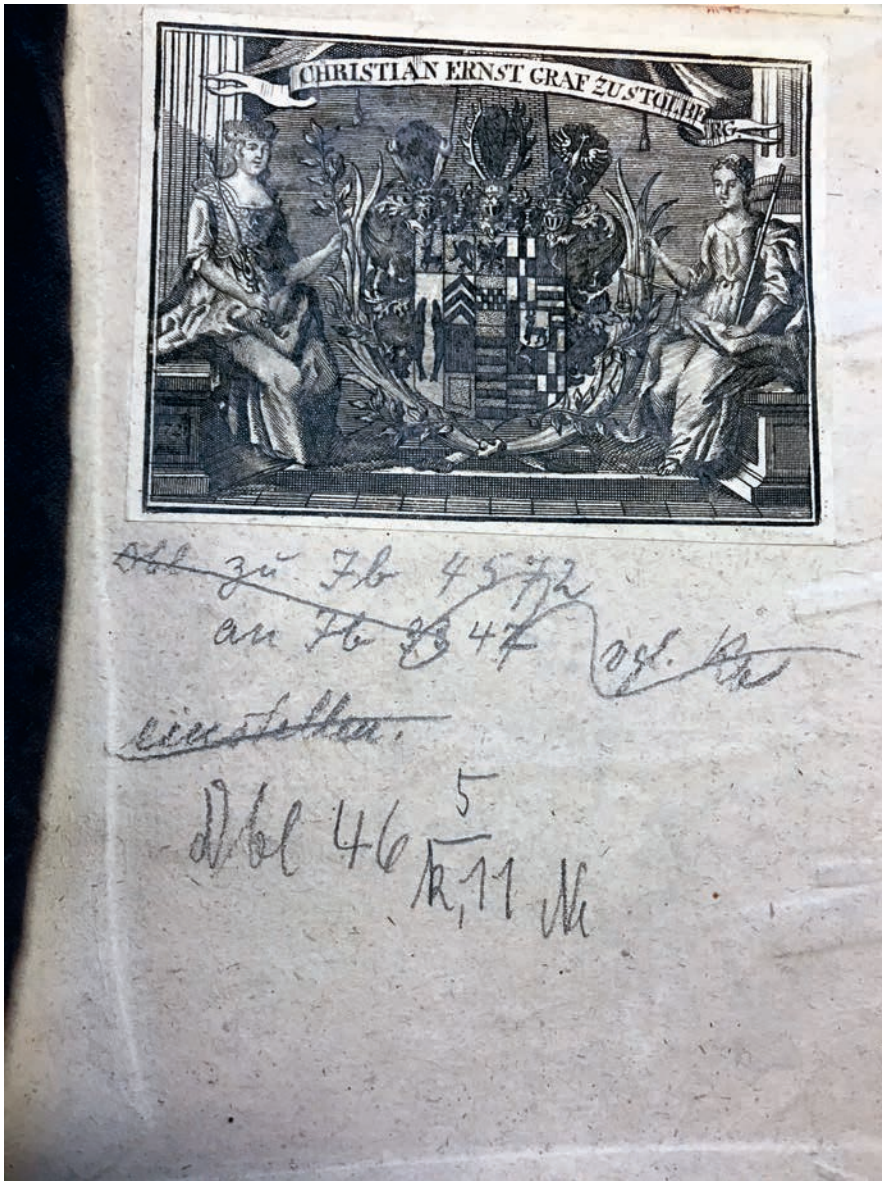 CHRISTIAN ERNST GRAF ZU STOLBERG
Dbl zu Jb 4572
an Jb 3347 vgl. Ka
einstellen.
Dbl 46 5/k,11 Ni